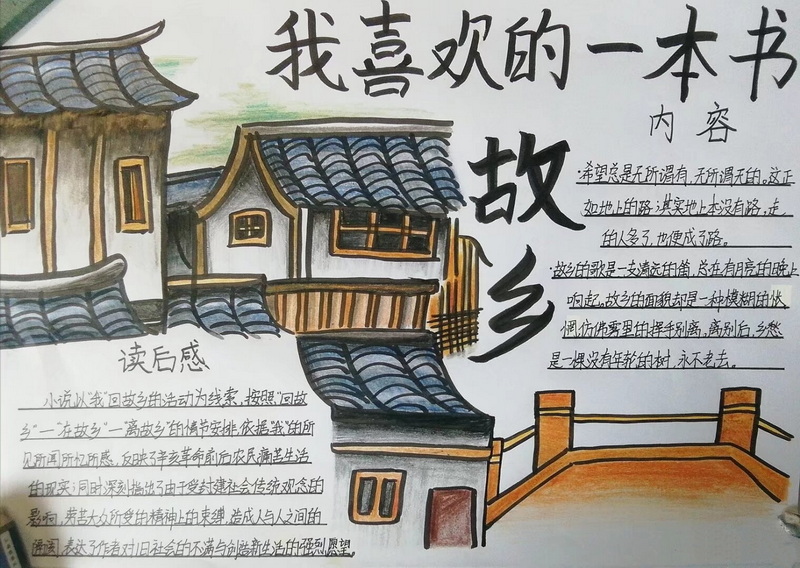 我喜欢的一本书
故乡
内容
希望总是无所谓有,无所谓无的。这正
如地上的路;其实地上本没有路,走
的人多了,也便成了路。
故乡的歌是一支清远的笛,总在有月亮的晚上
响起。故乡的面貌却是一种模糊的怅
惘,仿佛雾里的挥手别离,离别后,乡愁
是一棵没有年轮的树,永不老去。
读后感
小说以“我”回故乡的活动为线索,按照“回故
乡”一“在故乡”一离故乡”的情节安排,依据“我”的所
见所闻所忆所感,反映了辛亥革命前后农民痛苦生活
的现实;同时深刻指出了由于受封建社会传统观念的
影响,劳苦大众所受的精神上的束缚,造成人与人之间的
表达了作者对旧社会的不满与创造新生活的强烈愿望。